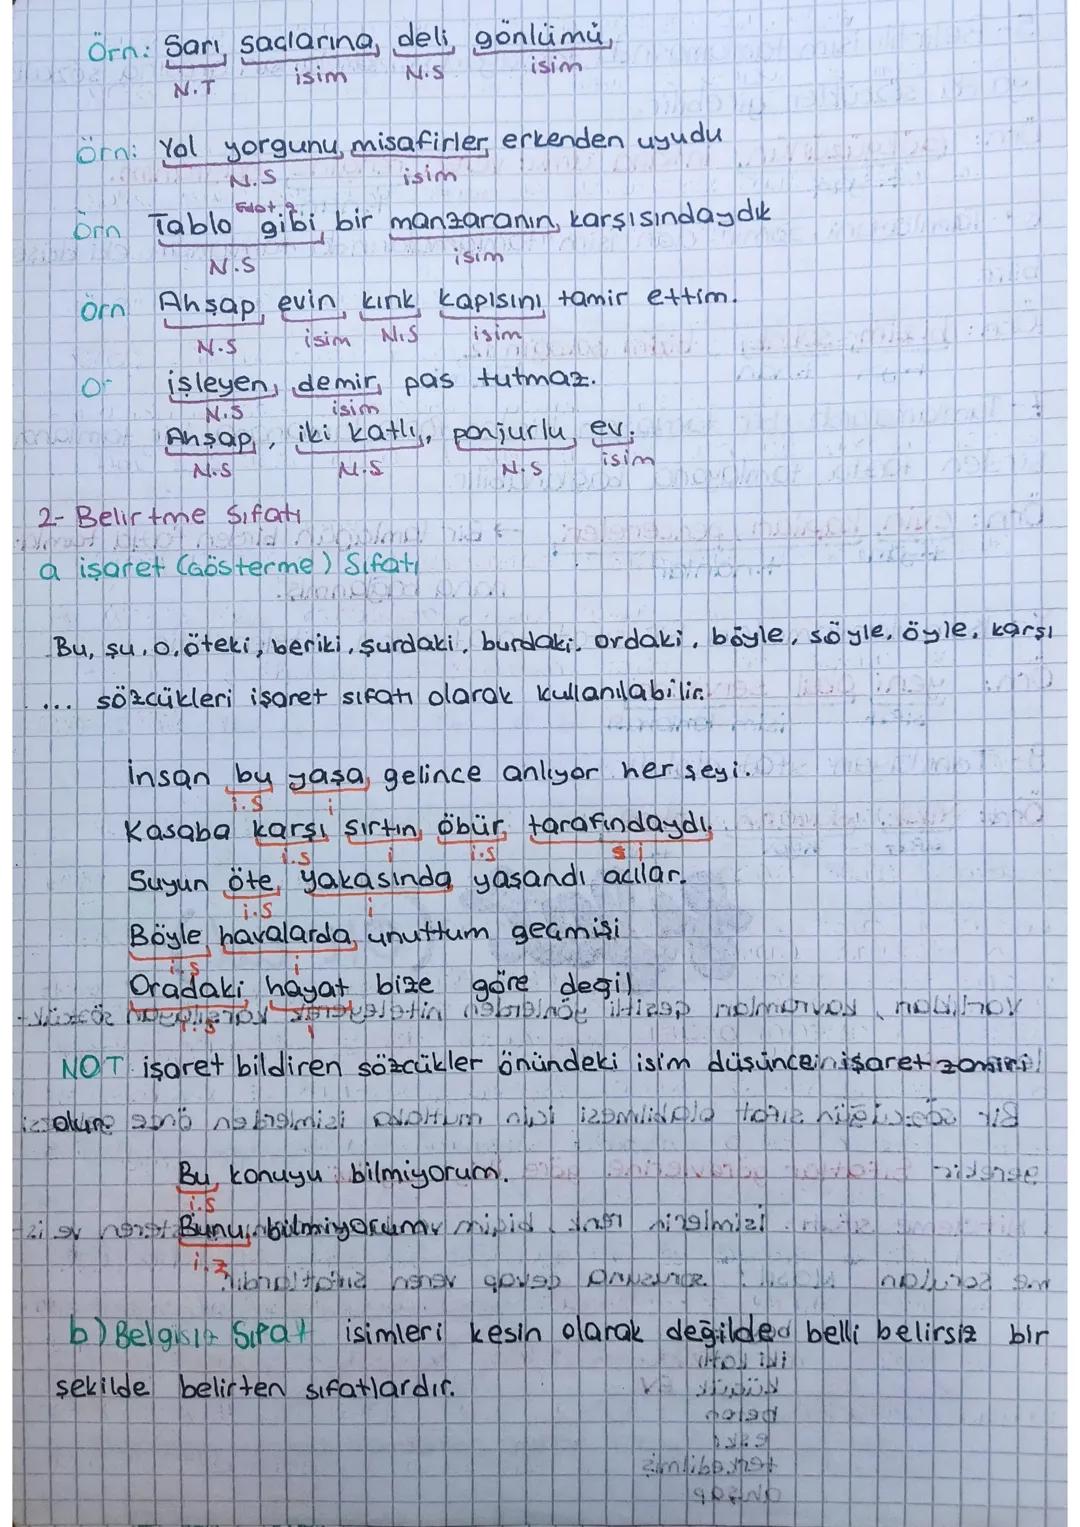 Örn: Sarı saclarına, deli gönlümü,
N.T isim N.S isim
Örn: Yol yorgunu misafirler erkenden uyudu
N.S isim
Edat
Örn Tablo gibi bir manzaranın karşısındaydık
N.S isim
Örn Ahşap evin kırık kapısını tamir ettim.
N.S isim N.S isim
Ör işleyen demir pas tutmaz.
N.S isim
Ahşap, iki katlı, panjurlu ev.
N.S N.S N.S isim
2- Belirtme Sıfatı
a işaret (Gösterme) Sıfatı
Bu, şu, o, öteki, beriki, şurdaki, burdaki, ordaki, böyle, söyle, öyle, karşı
... sözcükleri işaret sıfatı olarak kullanılabilir.
insan bu yaşa gelince anlıyor her şeyi.
i.S i
Kasaba karşı sırtın öbür tarafındaydı.
i.S i i.S i
Suyun öte yakasında yaşandı acılar.
i.S i
Böyle havalarda unuttum geçmişi
i.S i
Oradaki hayat bize göre değil
i.S i
NOT işaret bildiren sözcükler önündeki isim düşünce işaret zamiri
olur
Bu konuyu bilmiyorum.
i.S
Bunu bilmiyorum
i.z
b) Belgisiz Sıfat isimleri kesin olarak değilde belli belirsiz bir
şekilde belirten sıfatlardır.